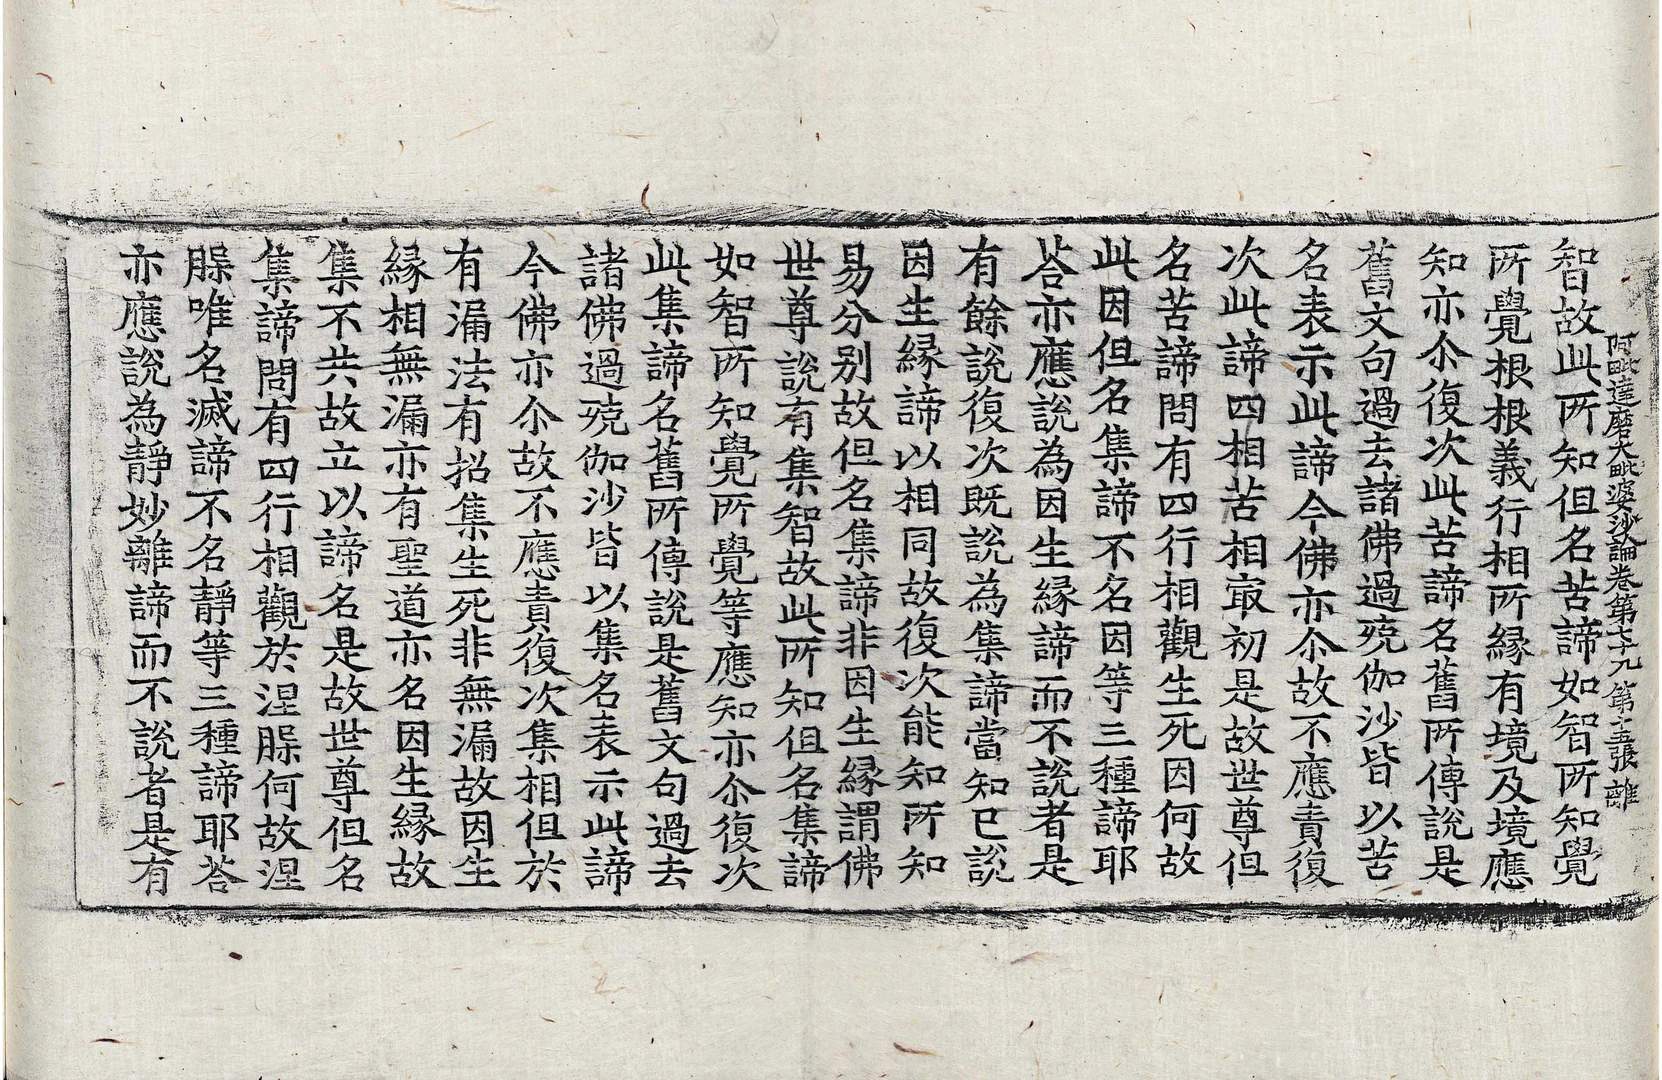 阿毗達磨大毗婆沙論卷第七十九　第十五張　離
智故此所知但名苦諦如智所知覺
所覺根根義行相所縁有境及境應
知亦尒復次此苦諦名舊所傳說是
舊文句過去諸佛過殑伽沙皆以苦
名表示此諦今佛亦尒故不應責復
次此諦四相苦相㝡初是故世尊但
名苦諦問有四行相觀生死因何故
此因但名集諦不名因等三種諦耶
荅亦應說為因生縁諦而不說者是
有餘說復次既說為集諦當知已說
因生縁諦以相同故復次能知所知
易分別故但名集諦非因生縁謂佛
世尊說有集智故此所知但名集諦
如智所知覺所覺等應知亦尒復次
此集諦名舊所傳說是舊文句過去
諸佛過殑伽沙皆以集名表示此諦
今佛亦尒故不應責復次集相但於
有漏法有招集生死非無漏故因生
縁相無漏亦有聖道亦名因生縁故
集不共故立以諦名是故世尊但名
集諦問有四行相觀於涅槃何故涅
槃唯名滅諦不名靜等三種諦耶荅
亦應說為靜妙離諦而不說者是有